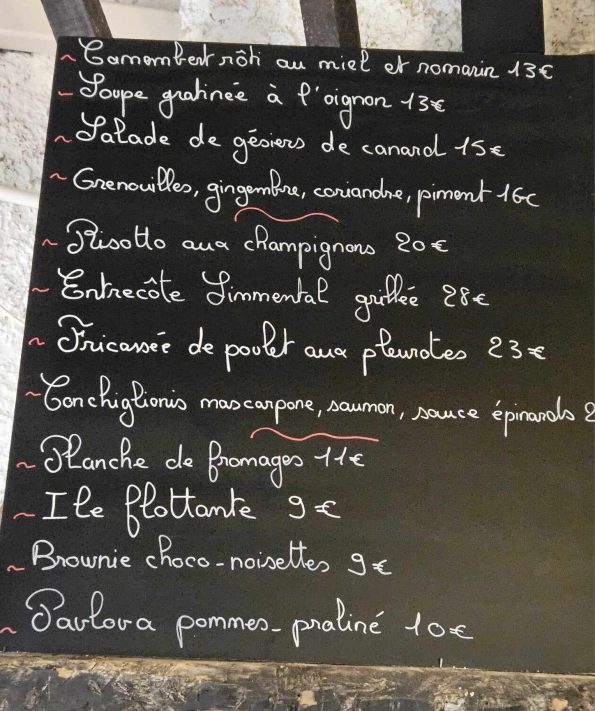 ~ Camembert rôti au miel et romarin 13€
~ Soupe gratinée à l'oignon 13€
~ Salade de gésiers de canard 15€
~ Grenouilles, gingembre, coriandre, piment 16€
~ Risotto aux champignons 20€
~ Entrecôte Simmental grillée 28€
~ Fricassée de poulet aux pleurotes 23€
~ Conchiglionis mascarpone, saumon, sauce épinards
~ Planche de fromages 11€
~ Ile flottante 9€
~ Brownie choco-noisettes 9€
~ Pavlova pommes-praliné 10€